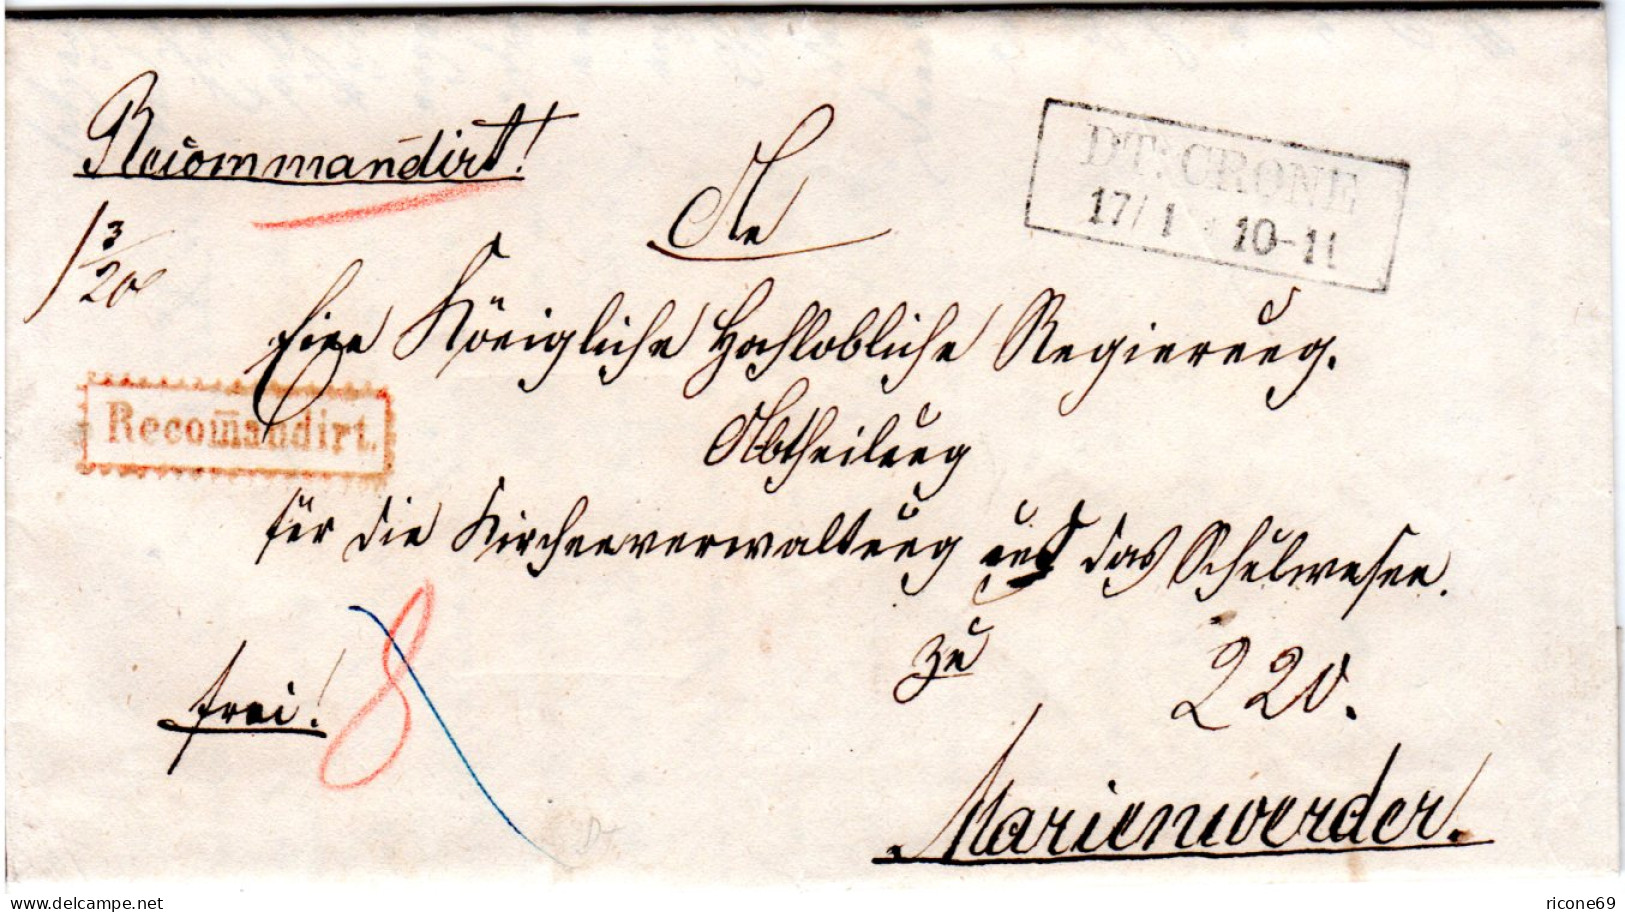 Recommandirt!
DT: CRONE
17/1 * 10-11
An
1 3/20
Eine Königliche Hochlöbliche Regierung.
Recom̄andirt.
Abtheilung
für die Kirchenverwaltung und das Schulwesen.
zu
220.
frei!
8
Marienwerder.
© delcampe.net
ricone69